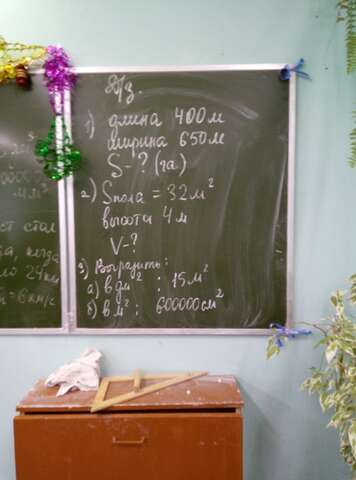 Д/з.
1) длина 400 м
ширина 650 м
S - ? (га)
2) Sпола = 32 м²
высота 4 м
V - ?
3) Выразить:
а) в дм² : 15 м²
б) в м² : 600000 см²
ст стал
а, когда
24 км
= 6 км/ч